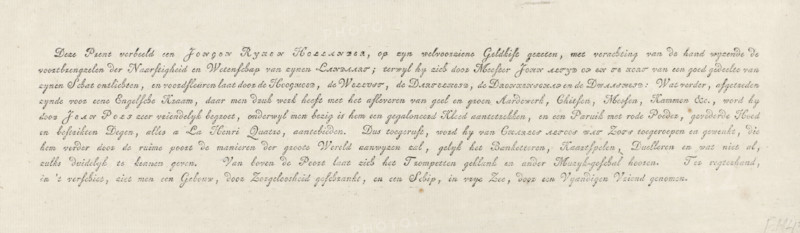 Deze Prent verbeeld een JONGEN RYKEN HOLLANDER, op zyn welvoorziene Geldkist gezeten, met verachting van de hand wyzende de
voortbrengzelen der Naarstigheid en Wetenschap van zynen LANDAART; terwyl hy zich door Meester JOHN van een goed gedeelte van
zynen Schat ontlichten, en voortsleuren laat door de HOOGMOED, de WELLUST, de DARTELHEID, de DRONKENSCHAP en de DWAASHEID: Wat verder, afgetreden
zynde voor eene Engelsche Kraam, daar men druk werk heeft met het afleveren van geel en groen Aardewerk, Chitsen, Messen, Kammen &c., word hy
door JEAN POCO zeer vriendelyk begroet, onderwyl men bezig is hem een gegaloneerd Kleed aantetrekken, en een Paruik met rode Poeder, gevederde Hoed
en bestrikten Degen, alles a La Henri Quatre, aantebieden. Dus toegerust, word hy van CHARLES toegeroepen en gewenkt, die
hem verder door de ruime poort de manieren der groote Wereld aanwyzen zal, gelyk het Banketteren, Kaartspelen, Duelleren en wat niet al,
zulks duidelyk te kennen geven. Van boven de Poort laat zich het Trompetten geklank en ander Muzyk-geschal hooren. Ter regterhand,
in 't verschiet, ziet men een Gebouw, door Zorgeloosheid gesprankt, en een Schip, in vrye Zee, door een Vyandigen Vriend genomen.